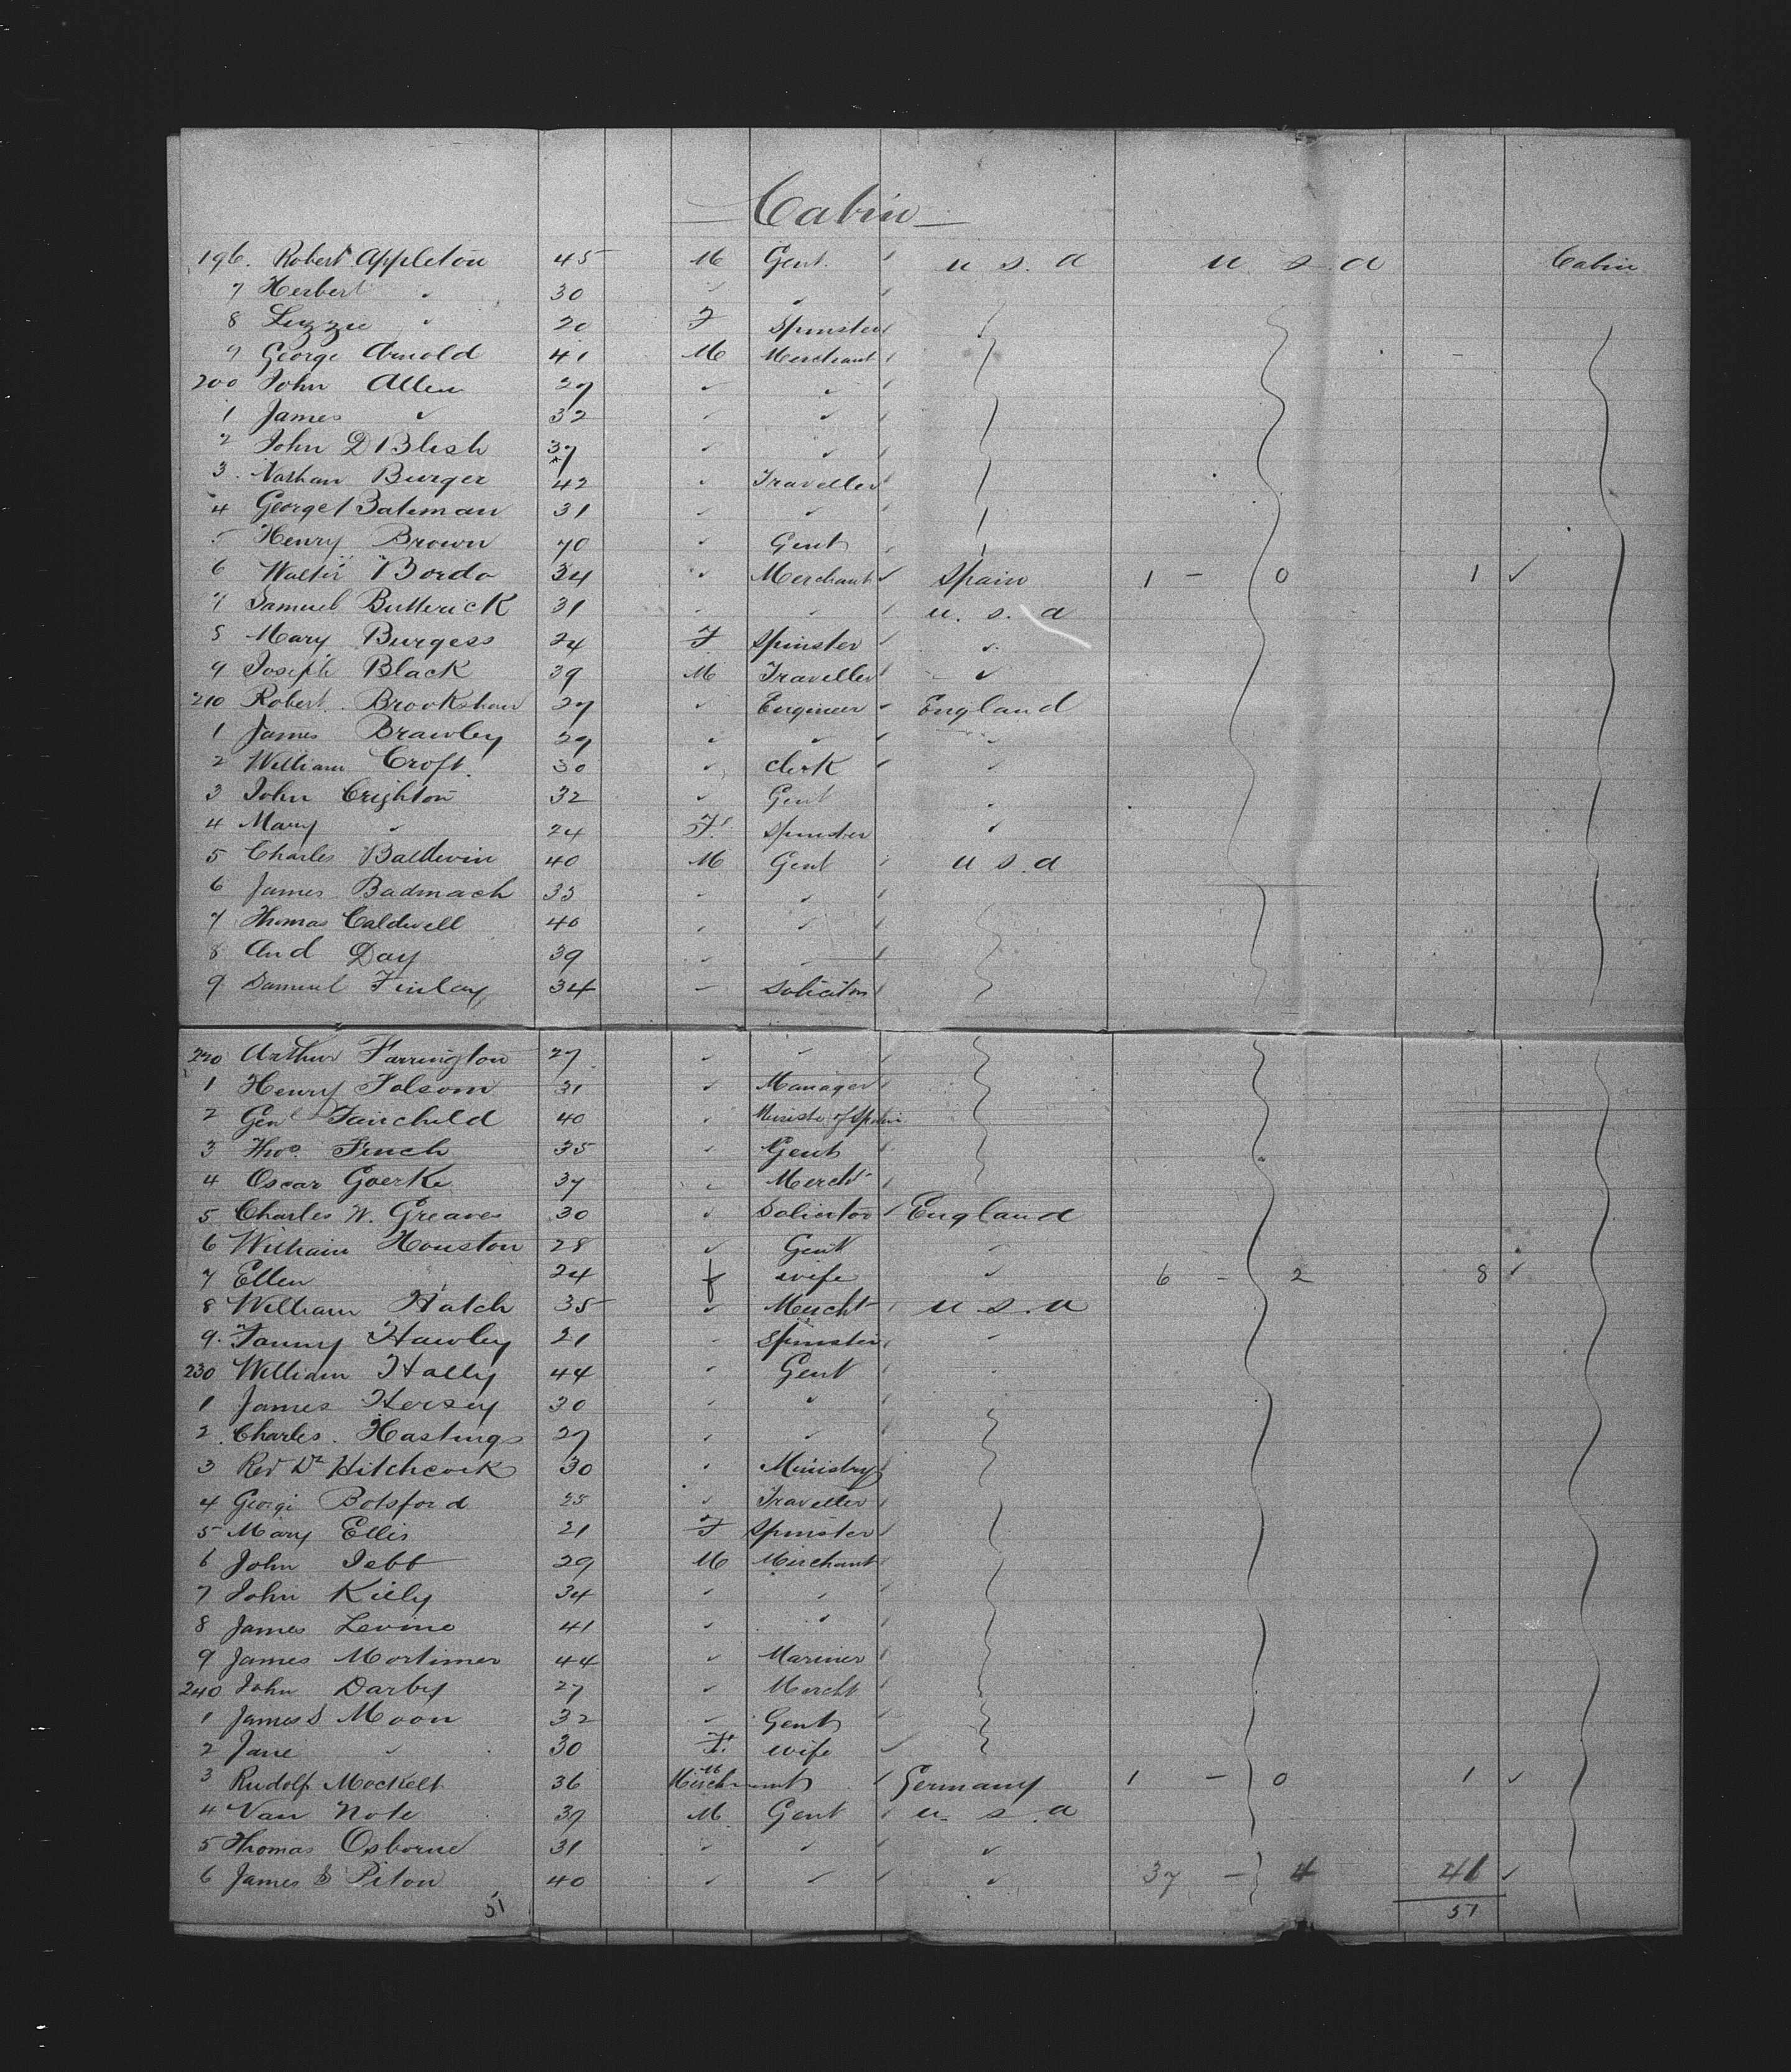 Cabin
196. Robert Appleton 45 M Gent. ✓ U S. A U. S. A Cabin
7 Herbert " 30 ✓ ✓ ✓
8 Lizzie " 20 F Spinster ✓
9 George Arnold 41 M Merchant ✓
200 John Allen 27 ✓ ✓ ✓
1 James ✓ 32 ✓ ✓ ✓
2 John D Blish 37 ✓ ✓ ✓
3. Nathan Burger 42 ✓ Traveller ✓
4 George Bateman 31 ✓ ✓ ✓
5 Henry Brown 40 ✓ Gent ✓
6 Walter Bordo 34 ✓ Merchant ✓ Spain 1 - 0 1 ✓
7 Samuel Butterick 31 ✓ ✓ ✓ U. S. A
8 Mary Burgess 24 F Spinster ✓ ✓
9 Joseph Black 39 M Traveller ✓ ✓
210 Robert Brookshaw 27 ✓ Engineer ✓ England
1 James Brawley 29 ✓ ✓ ✓ ✓
2 William Croft 30 ✓ Clerk ✓ ✓
3 John Crighton 32 ✓ Gent ✓
4 Mary ✓ 24 F. Spinster ✓
5 Charles Baldwin 40 M Gent ✓ U S. A
6 James Badmach 35 ✓ ✓ ✓
7 Thomas Caldwell 40 ✓ ✓ ✓
8 And Day 39 ✓ ✓ ✓
9 Samuel Finlay 34 ✓ Solicitor ✓
220 Arthur Farrington 27 ✓ ✓ ✓
1 Henry Folsom 31 ✓ Manager ✓
2 Genl Fairchild 40 ✓ Ministr of Spain
3 Thos. Finch 35 ✓ Gent ✓
4 Oscar Goerke 37 ✓ Mercht ✓
5 Charles W. Greaves 30 ✓ Solicitor ✓ England
6 William Houston 28 ✓ Gent ✓
7 Ellen " 24 f wife ✓ 6 - 2 8 ✓
8 William Hatch 35 ✓ Mercht ✓ U. S. A
9. Fanny Hawley 21 ✓ Spinster ✓ ✓
230 William Hally 44 ✓ Gent ✓ ✓
1 James Hersey 30 ✓ ✓ ✓
2. Charles. Hastings 27 ✓ ✓ ✓
3 Rev Dr Hitchcock 30 ✓ Ministry ✓
4 Georgi Botsford 25 ✓ Traveller ✓
5 Mary Ellis 21 F Spinster ✓
6 John Jebb 29 M Merchant ✓
7 John Kiely 34 ✓ ✓ ✓
8 James Levine 41 ✓ ✓ ✓
9 James Mortimer 44 ✓ Mariner ✓
240 John Darby 27 ✓ Mercht ✓
1 James S Moon 32 ✓ Gent ✓
2 Jane ✓ 30 F. wife ✓
3 Rudolf Mockelt 36 M Merchant ✓ Germany 1 - 0 1 ✓
4 Van Note 37 M Gent ✓ U. S. A
5 Thomas Osborne 31 ✓ ✓ ✓ ✓
6 James S Piton 40 ✓ ✓ ✓ ✓ 37 - 4 41 ✓
51 51